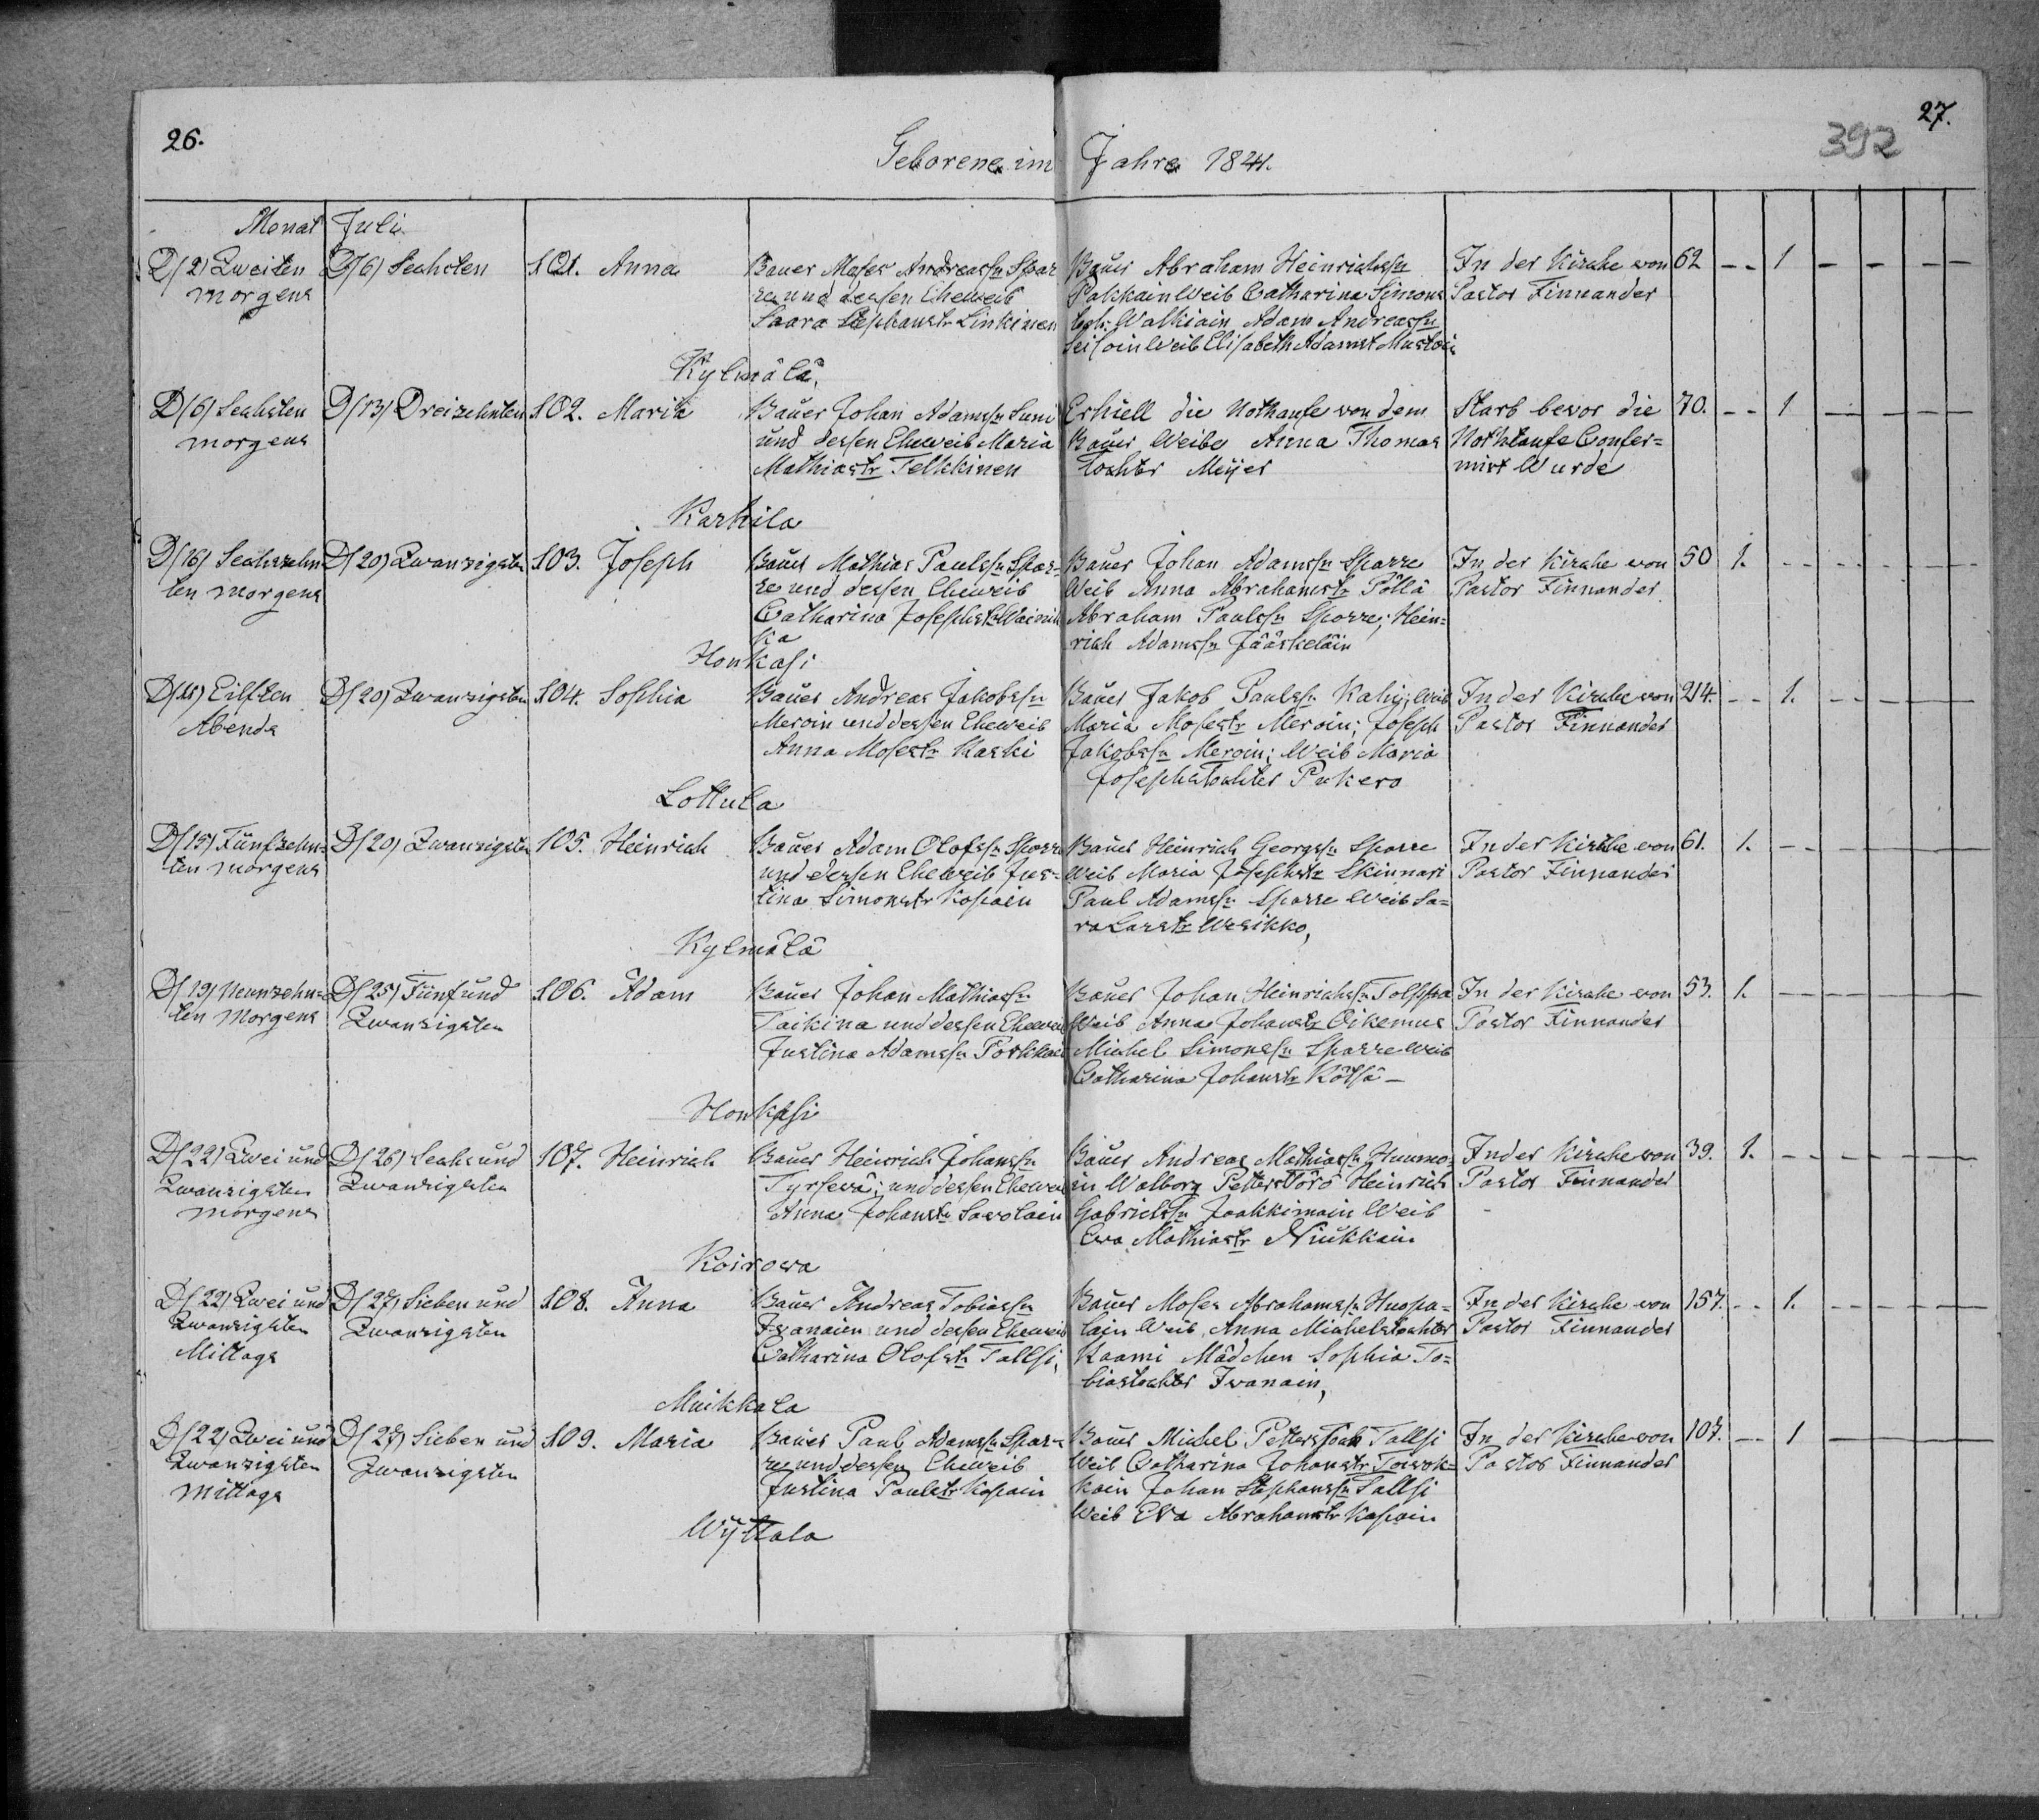 26.
27.
392
Geborene im Jahre 1841.
Monat Juli
D/2/ Zweiten
morgens
D/6/ Sechsten
101. Anna
Bauer Moses Andreassn Spar
re und dessen Eheweib
Saara Stephanstr Linkinen
Bauer Abraham Heinrichssn
Pakkain Weib Catharina Simons
toch: Walkiain Adam Andreassn
Seisoin Weib Elisabeth Adamst
In der Kirche von
Pastor Finnander
62 - - 1 - - - -
Kylmälä,
D/6/ Sechsten
morgens
D/13/ Dreizehnten
102. Maria
Bauer Johan Adamssn Suni
und dessen Eheweib Maria
Mathiastr Telkkinen
Erhiell die Nothaufe von dem
Bauer Weibe Anna Thomas
Tochter Meijer
Starb bevor die
Nothtaufe Confer=
mirt Wurde
70. - - 1 - - - -
Karhila
D/16/ Sechszehn
ten morgens
D/20/ Zwanzigsten
103. Joseph
Bauer Mathias Paulssn Spar=
re und dessen Eheweib
Catharina Josephstr Wainik
ka
Bauer Johan Adamssn Sparre
Weib Anna Abrahamstr Pöllä
Abraham Paulssn Sparre; Hein=
rich Adamssn Jääskeläin
In der Kirche von
Pastor Finnander
50 1. - - - - - -
Honkasi
D/11/ Eilften
Abends
D/20/ Zwanzigsten
104. Sophia
Bauer Andreas Jakobssn
Meroin und dessen Eheweib
Anna Mosestr Kaski
Bauer Jakob Paulssn Kahij; Weib
Maria Mosestr Meroin; Joseph
Jakobssn Meroin; Weib Maria
Josephstochter Pukero
In der Kirche von
Pastor Finnander
214. - - 1. - - - -
Lottula
D/15/ Fünfzehn=
ten morgens
D/20/ Zwanzigsten
105. Heinrich
Bauer Adam Olofssn Sparre
und dessen Eheweib Jus=
tina Simonstr Kopain
Bauer Heinrich Georgssn Sparre
Weib Maria Josephstr Skinnari
Paul Adamssn Sparre Weib Sa=
ra Larstr Wesikko,
In der Kirche von
Pastor Finnander
61. 1. - - - - - -
Kylmälä
D/19/ Neunzehn=
ten Morgens
D/25/ Fünf und
Zwanzigsten
106. Adam
Bauer Johan Mathiassn
Taikina und dessen Eheweib
Justina Adamssn Poskkain
Bauer Johan Heinrichssn Tolppa
Weib Anna Johanstr Oikemus
Michel Simonssn Sparre Weib
Catharina Johanstr Rötsä -
In der Kirche von
Pastor Finnander
53. 1. - - - - - -
Honkasi
D/22/ Zwei und
Zwanzigsten
morgens
D/26/ Sechs und
Zwanzigsten
107. Heinrich
Bauer Heinrich Johanssn
Tyrsevä; und dessen Eheweib
Anna Johanstr Sawolain
Bauer Andreas Mathiassn Huumo=
in Walborg Petterst Törö Heinrich
Gabrielssn Jaakkimain Weib
Ewa Mathiastr Niukkain
In der Kirche von
Pastor Finnander
39. 1. - - - - - -
Koirowa
D/22/ Zwei und
Zwanzigsten
Mittags
D/27/ Sieben und
Zwanzigsten
108. Anna
Bauer Andreas Tobiassn
Iwanaien und dessen Eheweib
Catharina Olofstr Tallsi,
Bauer Moses Abrahamssn Huopa=
lain Weib Anna Michelstochter
Kaami Mädchen Sophia To=
biastochter Iwanain,
In der Kirche von
Pastor Finnander
157. - - 1. - - - -
Muikkala
D/22/ Zwei und
Zwanzigsten
mittags
D/27/ Sieben und
Zwanzigsten
109. Maria
Bauer Paul Adamssn Spar=
re und dessen Eheweib
Justina Paulstr Kopain
Bauer Michel Petters Tallsi
Weib Catharina Johanstr Toiwok=
kain Johan Stephanssn Tallsi
Weib Ewa Abrahamstr Kopain
In der Kirche von
Pastor Finnander
107. - - 1 - - - -
Wyttala